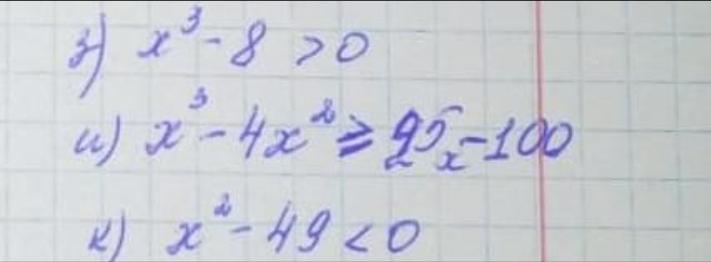 з) x³ - 8 > 0
и) x³ - 4x² ≥ 25x - 100
к) x² - 49 < 0